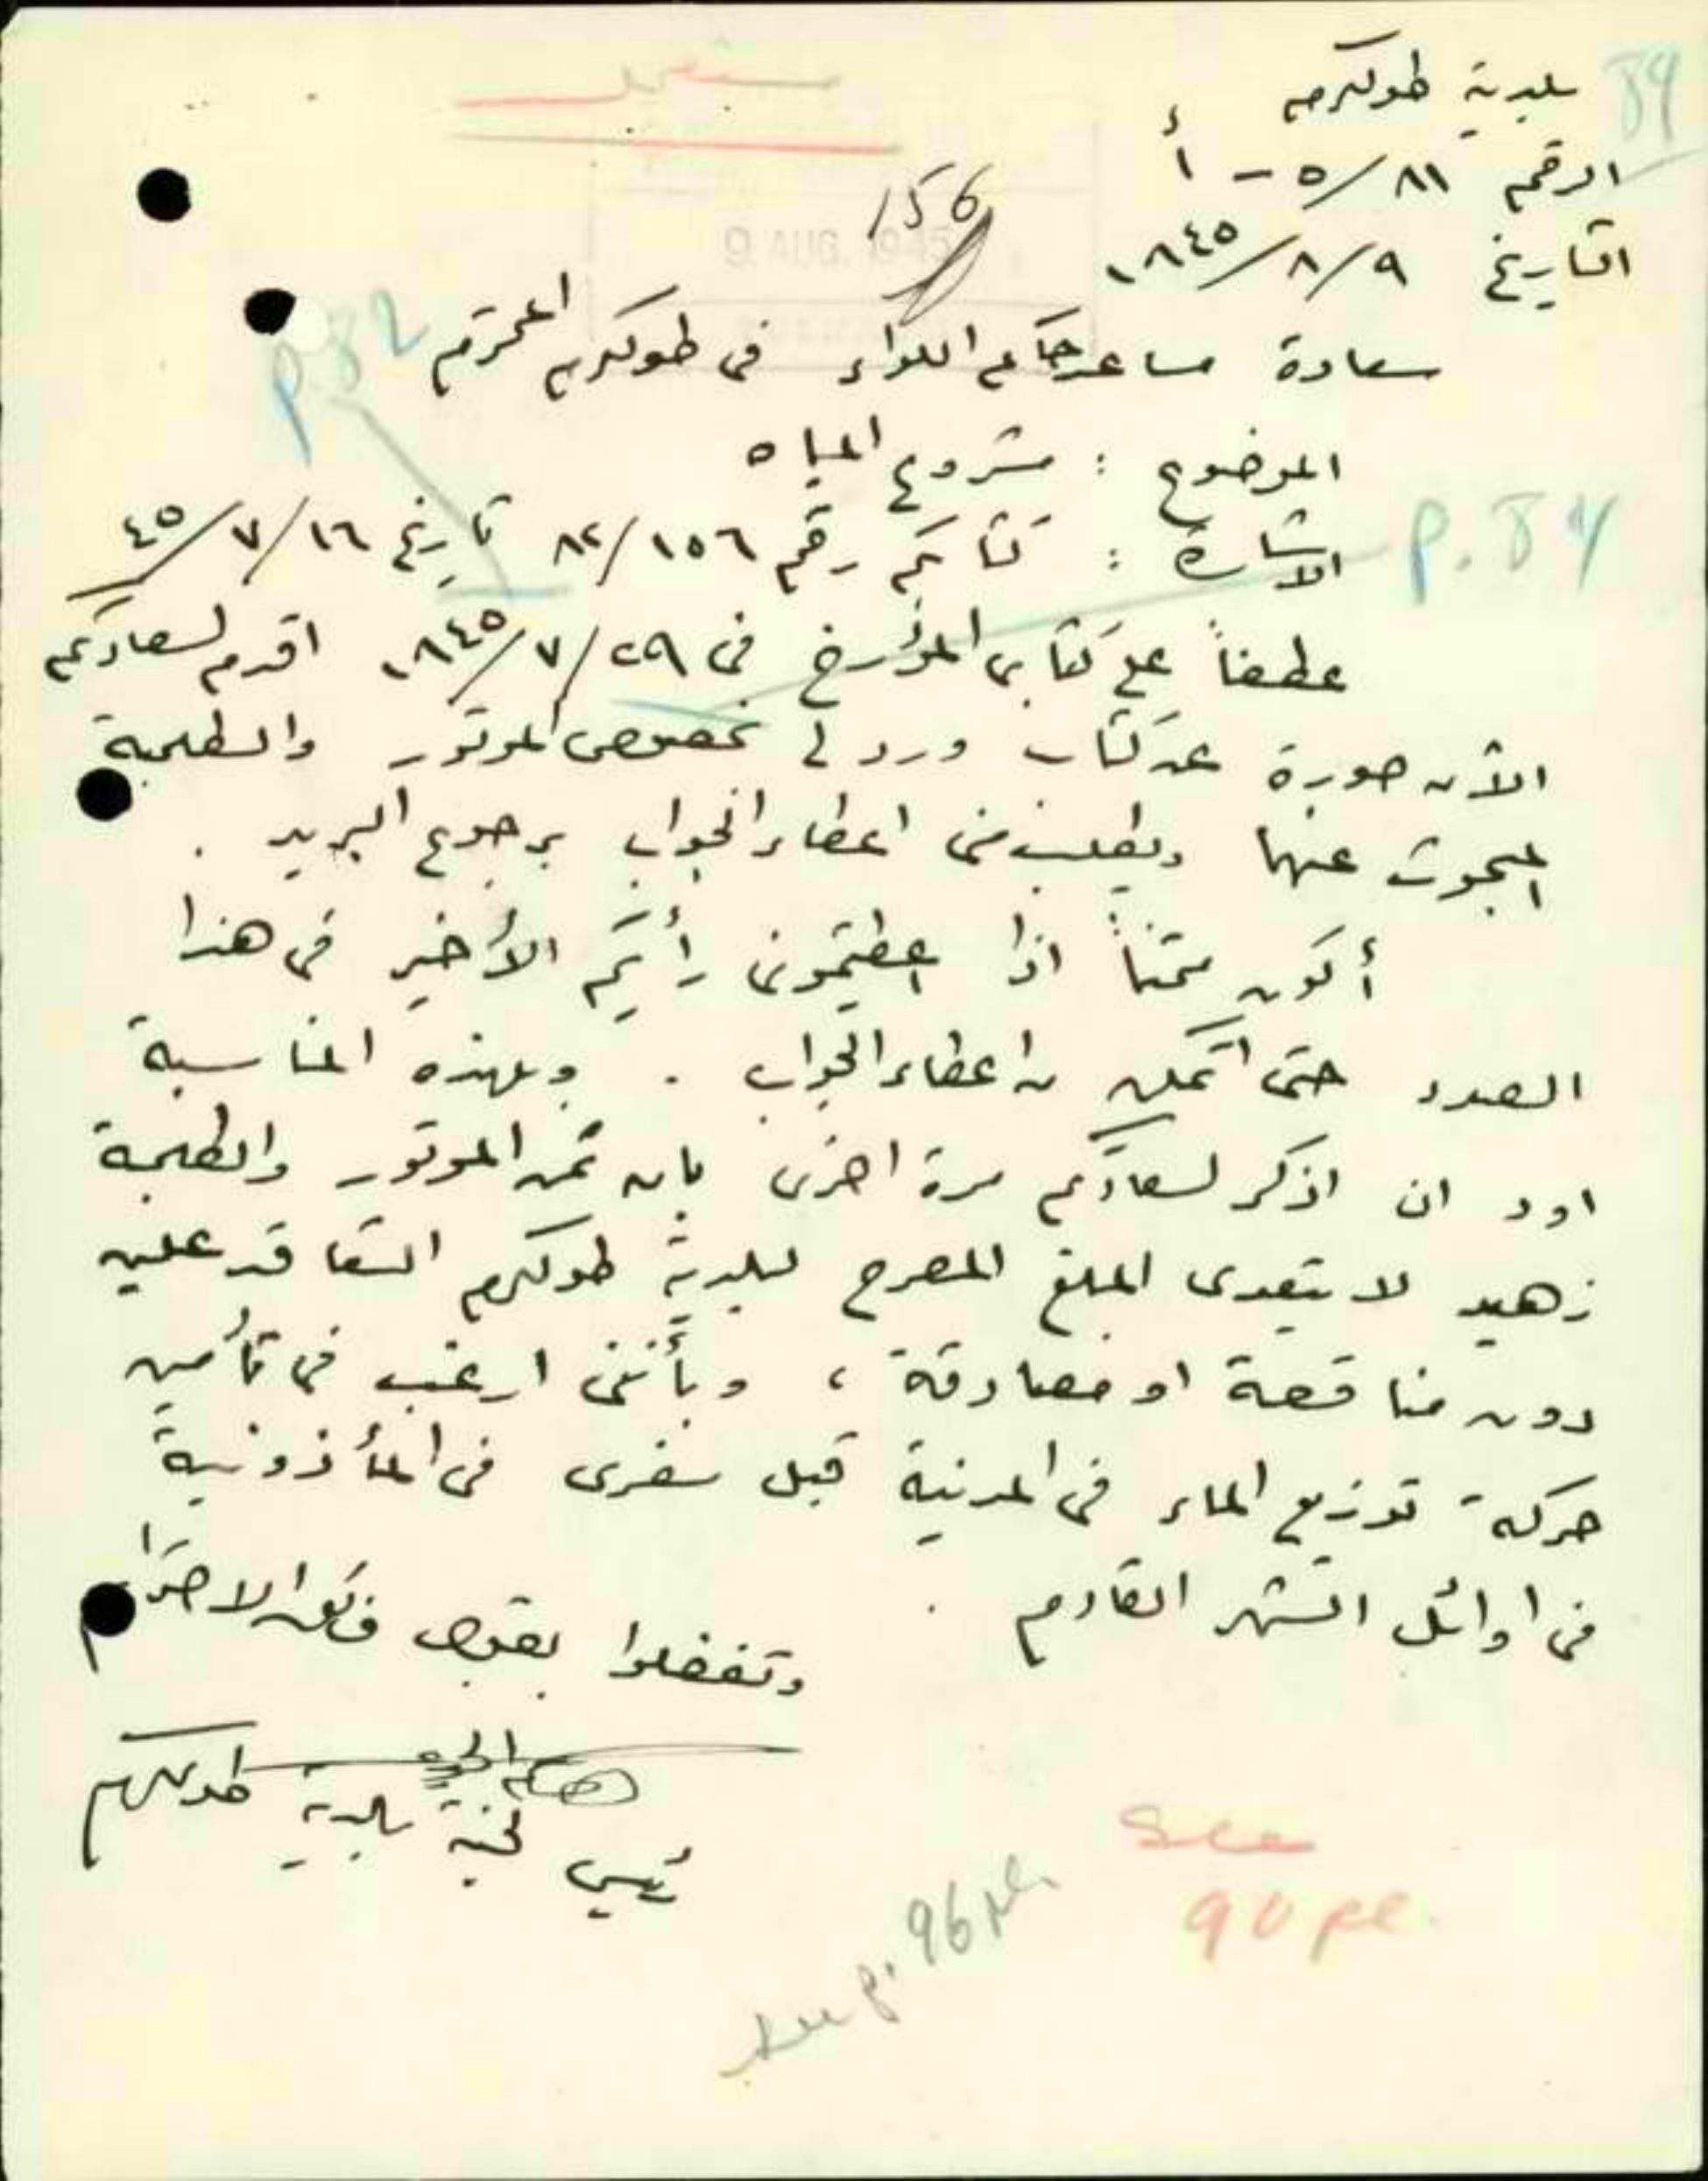 مستعجل
89
بلدية طولكرم
الرقم ٨١/٥ - أ
156
التاريخ ٩/٨/١٩٤٥
9 AUG. 1945
سعادة مساعد حاكم اللواء في طولكرم المحترم
p. 82
الموضوع : مشروع المياه
الاشارة : كتابكم رقم ٨٢/١٥٦ تاريخ ١٦/٧/٤٥
p. 84
عطفاً على كتابي المؤرخ في ٢٩/٧/١٩٤٥ اقدم لسعادتكم
الآن صورة عن كتاب ورد لي بخصوص الموتور والطلمبة
المبحوث عنهما ويطلب مني اعطاء الجواب برجوع البريد .
أكون ممتناً اذا اعطيتموني رأيكم الأخير في هذا
الصدد حتى اتمكن من اعطاء الجواب . وبهذه المناسبة
اود ان اذكر لسعادتكم مرة اخرى بان ثمن الموتور والطلمبة
زهيد لا يتعدى المبلغ المصرح لبلدية طولكرم التعاقد عليه
دون مناقصة او مصادقة ، وبأنني ارغب في تأمين
حركة توزيع الماء في المدينة قبل سفري في المأذونية
في اوائل الشهر القادم .
وتفضلوا بقبول فائق الاحترام
رئيس لجنة بلدية طولكرم
See
90 pl.
see p. 96 pl.